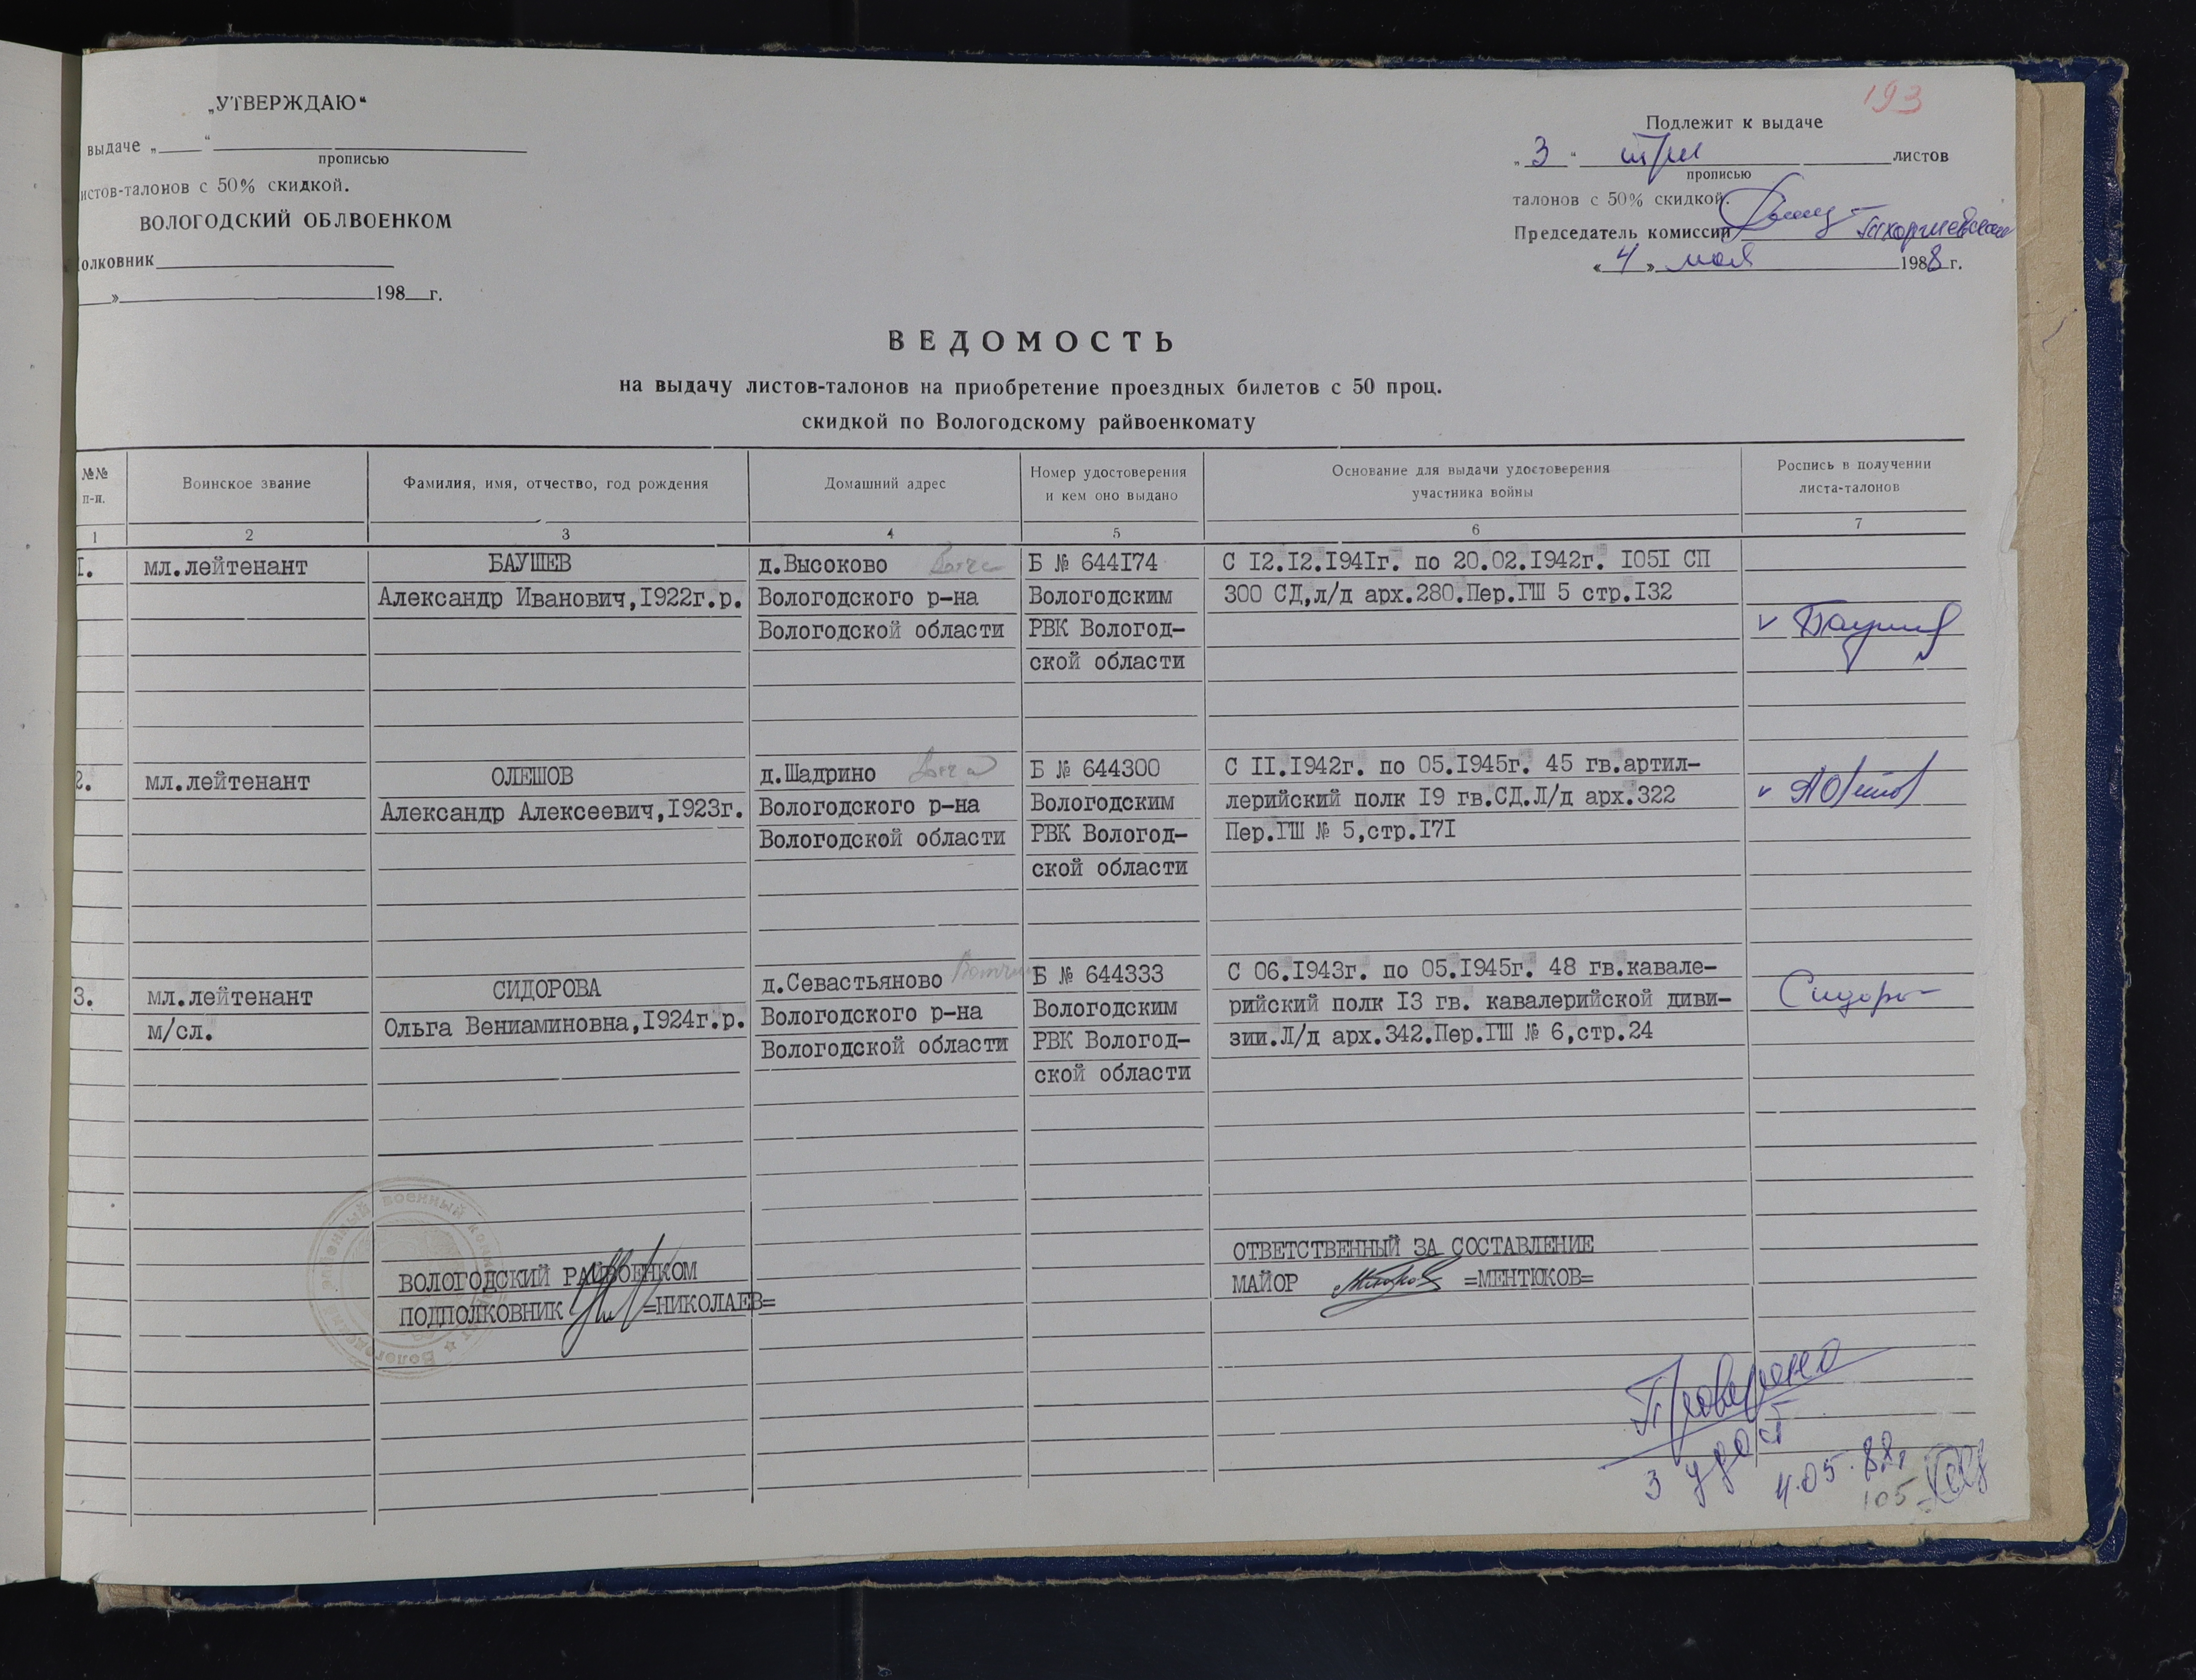 193
„УТВЕРЖДАЮ“
выдаче „ “
прописью
истов-талонов с 50% скидкой.
ВОЛОГОДСКИЙ ОБЛВОЕНКОМ
олковник
» 198 г.
Подлежит к выдаче
„ 3 “ три листов
прописью
талонов с 50% скидкой.
Председатель комиссии
« 4 » мая 1988 г.
ВЕДОМОСТЬ
на выдачу листов-талонов на приобретение проездных билетов с 50 проц.
скидкой по Вологодскому райвоенкомату
№№ п-п.
Воинское звание
Фамилия, имя, отчество, год рождения
Домашний адрес
Номер удостоверения
и кем оно выдано
Основание для выдачи удостоверения
участника войны
Роспись в получении
листа-талонов
1 2 3 4 5 6 7
I.
мл.лейтенант
БАУШЕВ
Александр Иванович,I922г.р.
д.Высоково
Вологодского р-на
Вологодской области
Б № 644I74
Вологодским
РВК Вологод-
ской области
С I2.I2.I94Iг. по 20.02.I942г. I05I СП
300 СД,л/д арх.280.Пер.ГШ 5 стр.I32
2.
мл.лейтенант
ОЛЕШОВ
Александр Алексеевич,I923г.
д.Шадрино
Вологодского р-на
Вологодской области
Б № 644300
Вологодским
РВК Вологод-
ской области
С II.I942г. по 05.I945г. 45 гв.артил-
лерийский полк I9 гв.СД.Л/д арх.322
Пер.ГШ № 5,стр.I7I
3.
мл.лейтенант
м/сл.
СИДОРОВА
Ольга Вениаминовна,I924г.р.
д.Севастьяново
Вологодского р-на
Вологодской области
Б № 644333
Вологодским
РВК Вологод-
ской области
С 06.I943г. по 05.I945г. 48 гв.кавале-
рийский полк I3 гв. кавалерийской диви-
зии.Л/д арх.342.Пер.ГШ № 6,стр.24
ВОЛОГОДСКИЙ РАЙВОЕНКОМ
ПОДПОЛКОВНИК =НИКОЛАЕВ=
ОТВЕТСТВЕННЫЙ ЗА СОСТАВЛЕНИЕ
МАЙОР =МЕНТЮКОВ=
Проверено
3 удост
4.05.88г
105